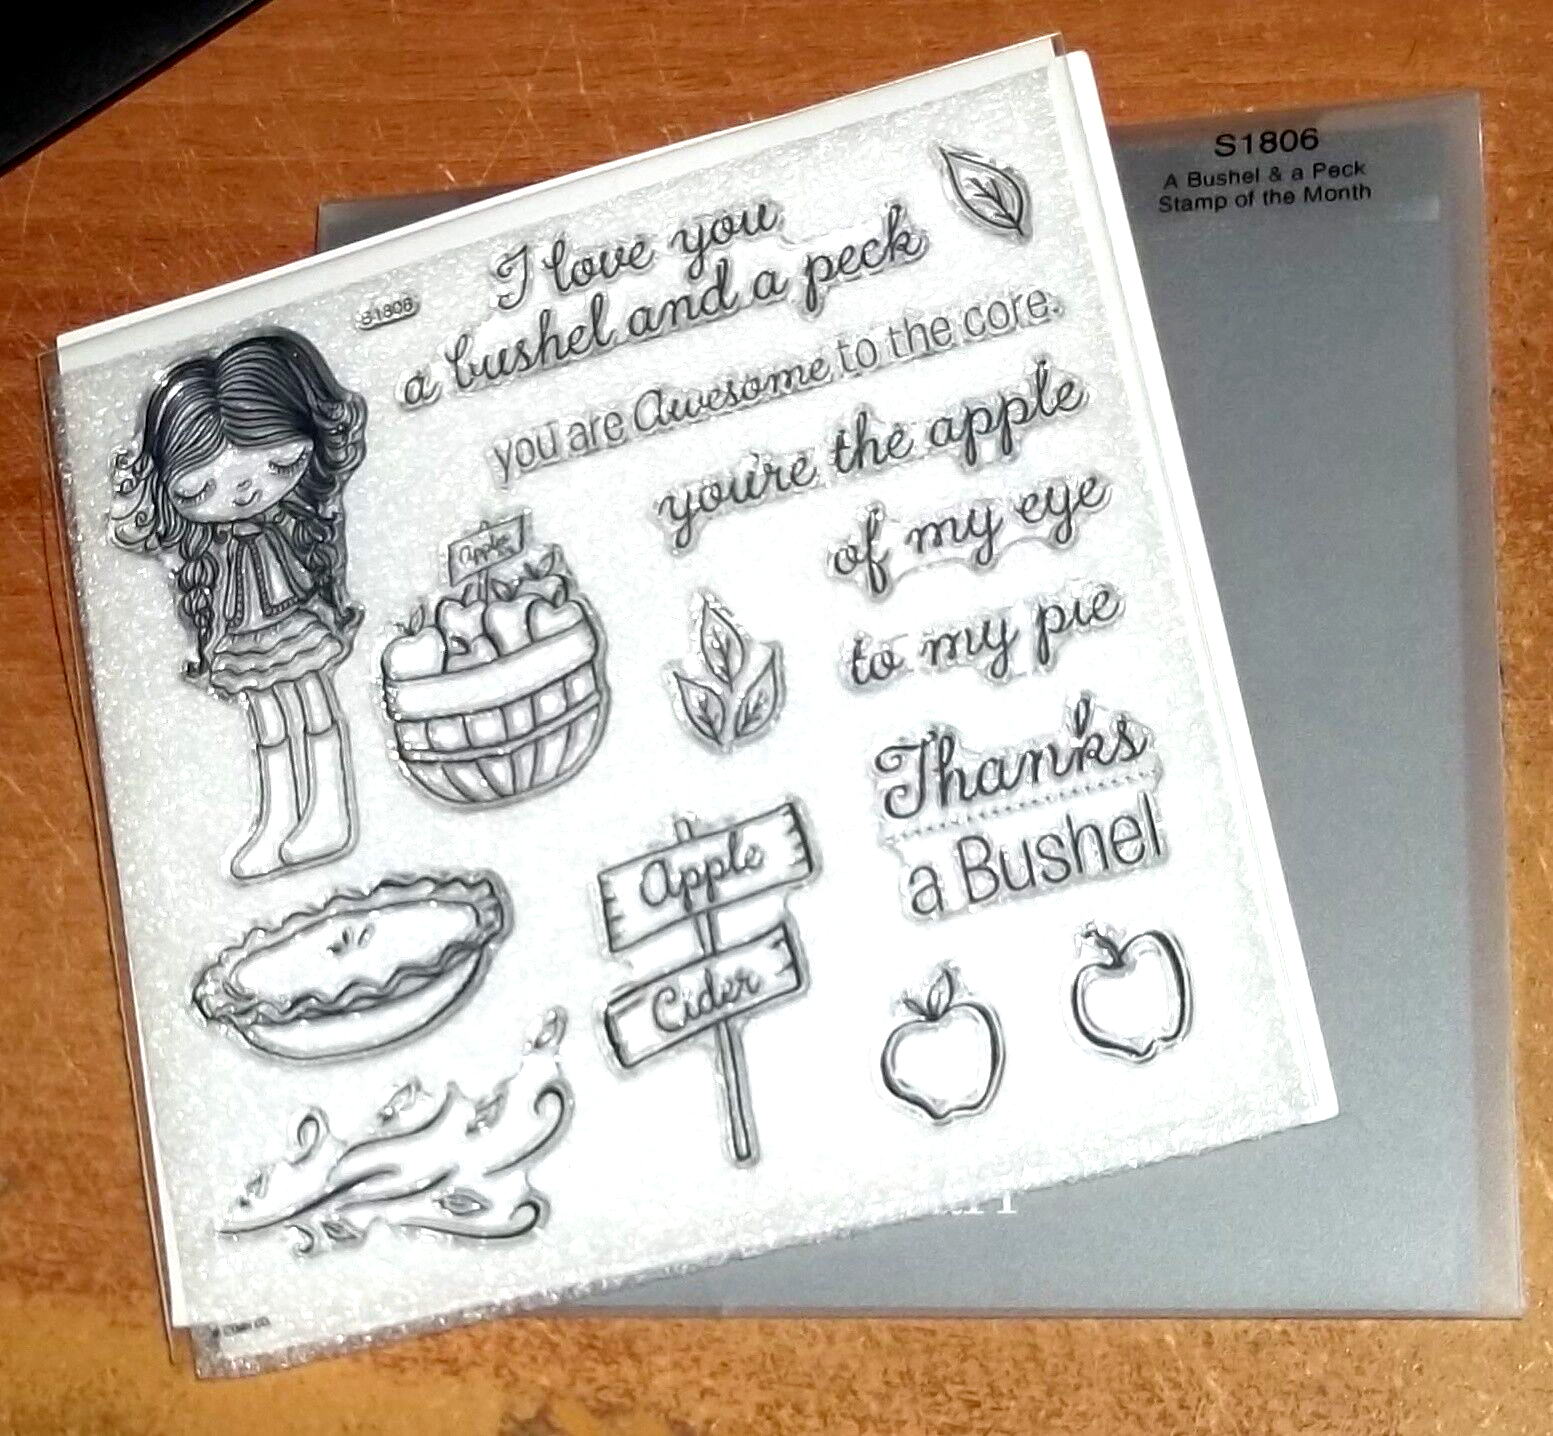 S1806
A Bushel & a Peck
Stamp of the Month
S1806
I love you
a bushel and a peck
you are Awesome to the core.
you're the apple
of my eye
to my pie
Apples
Thanks
a Bushel
Apple
Cider